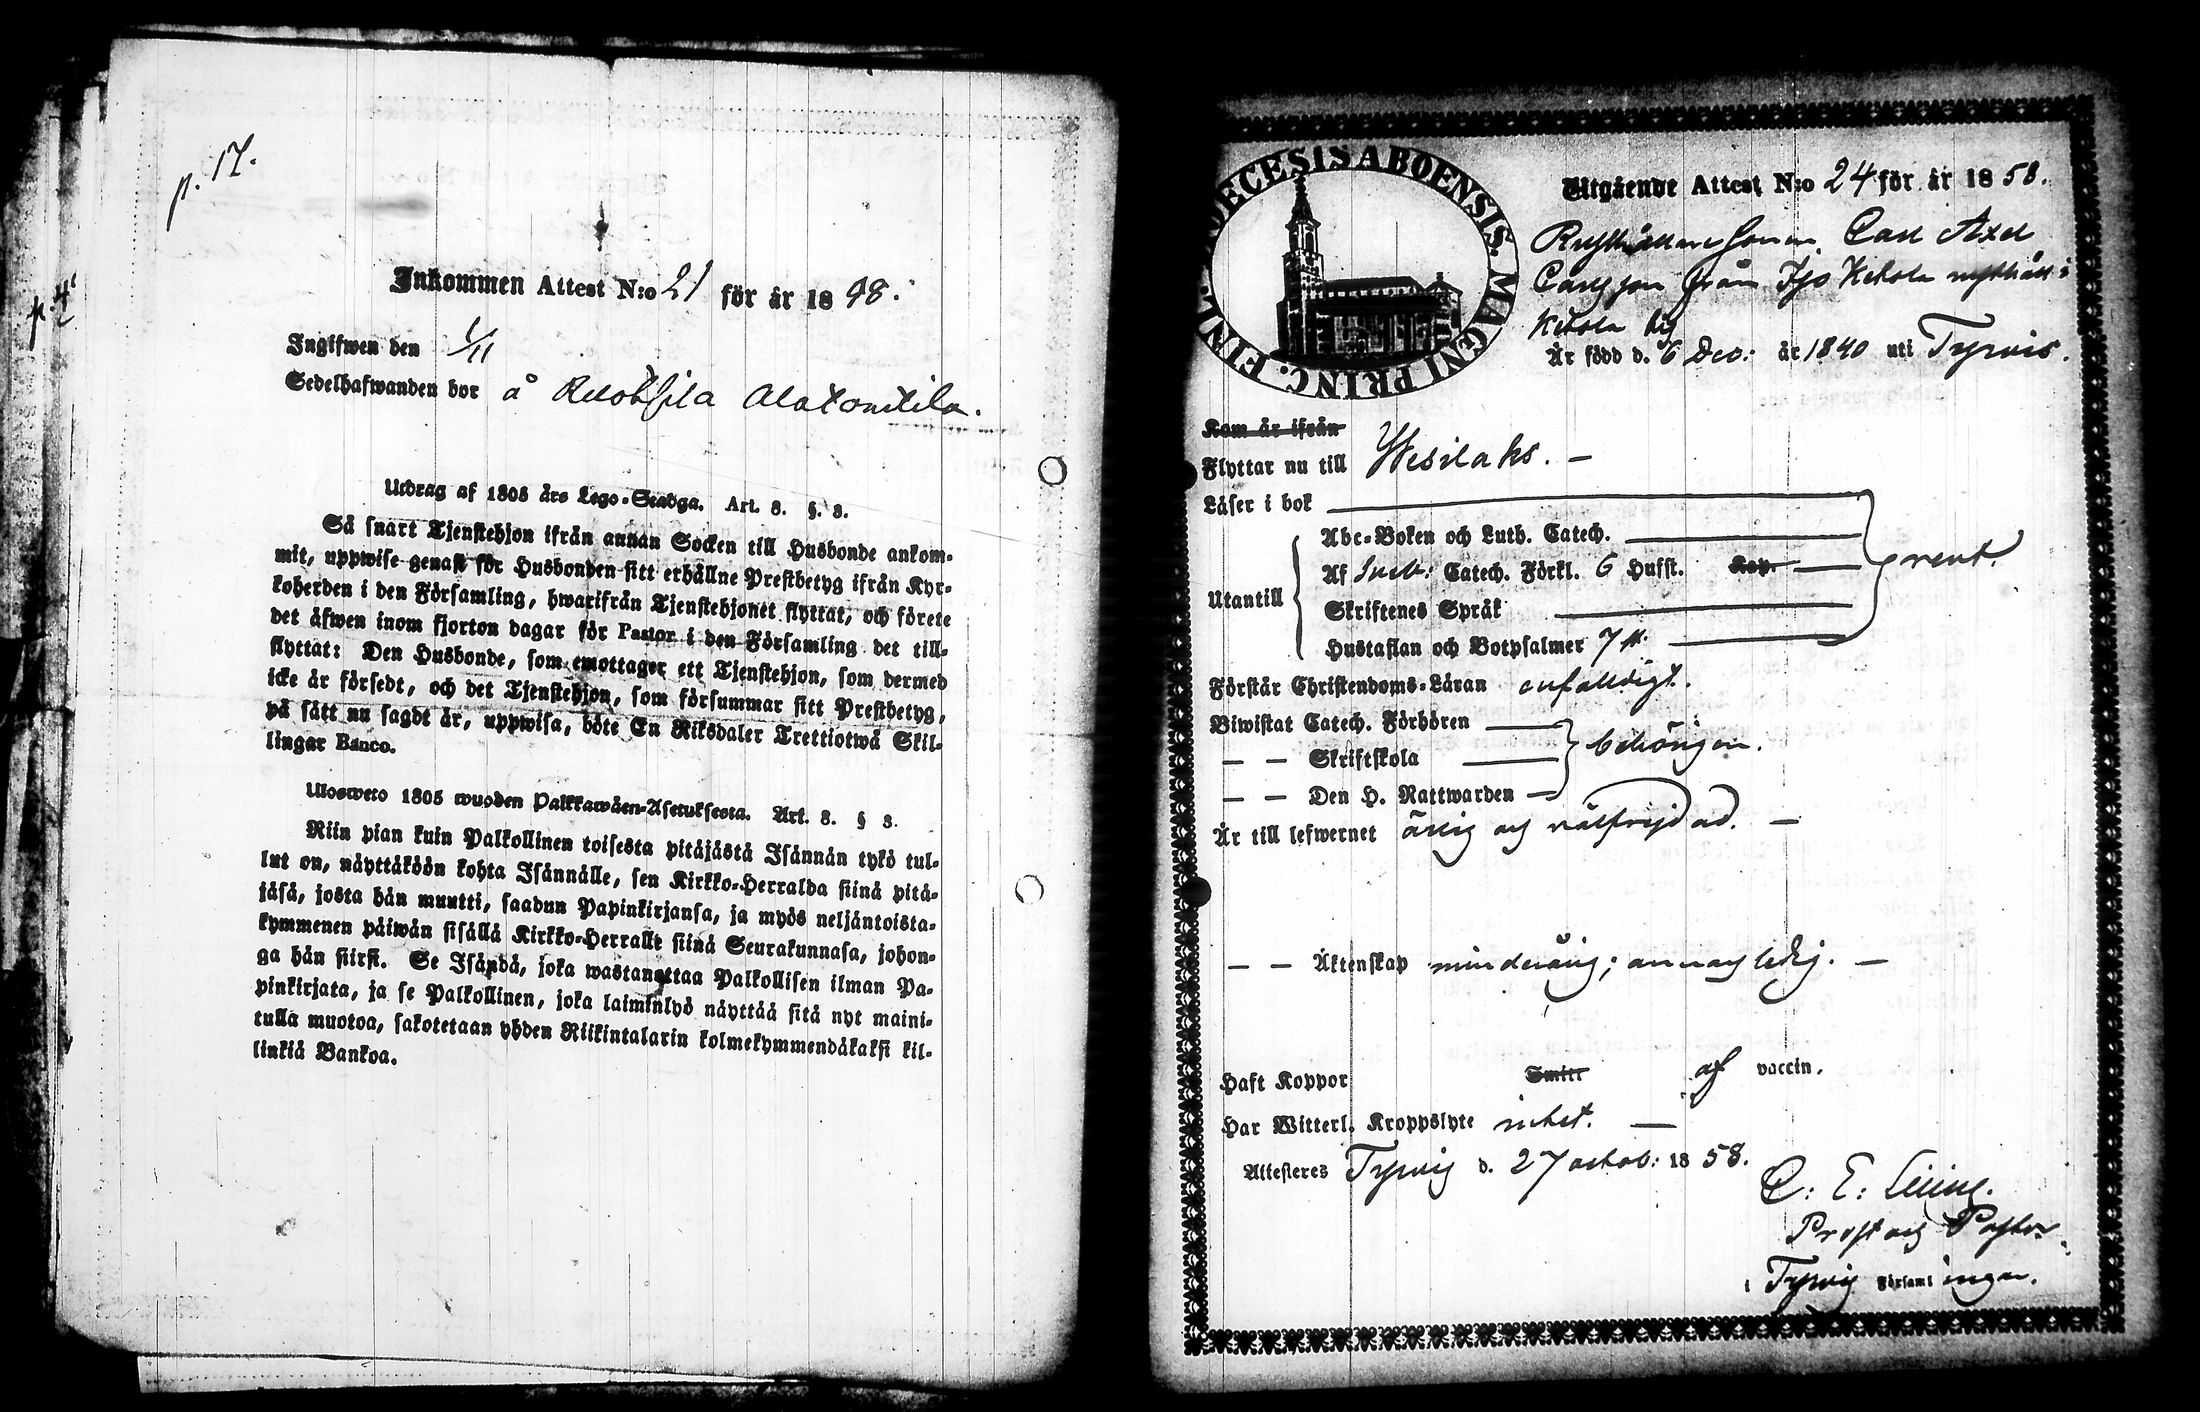 p. 17.
p. 4
Inkommen Attest N:o 21 för år 1848.
Ingifwen den 1/11
Sedelhafwanden bor å
Utdrag af 1805 års Lego-Stadga. Art. 8. §. 3.
Så snart Tjenstehjon ifrån annan Socken till Husbonde ankom-
mit, uppwise genast för Husbonden sitt erhållne Prestbetyg ifrån Kyr-
koherden i den Församling, hwarifrån Tjenstehjonet flyttat, och förete
det äfwen inom fjorton dagar för Pastor i den Församling det till-
flyttat: Den Husbonde, som emottager ett Tjenstehjon, som dermed
icke är försedt, och det Tjenstehjon, som försummar sitt Prestbetyg,
på sätt nu sagdt är, uppwisa, böte En Riksdaler Trettiotwå Skil-
lingar Banco.
Ulosweto 1805 wuoden Palkkawäen-Asetuksesta. Art. 8. § 3.
Niin pian kuin Palkollinen toisesta pitäjästä Isännän tykö tul-
lut on, näyttäköön kohta Isännälle, sen Kirkko-Herralda siinä pitä-
jäsä, josta hän muutti, saadun Papinkirjansa, ja myös neljäntoista-
kymmenen päiwän sisällä Kirkko-Herralle siinä Seurakunnasa, johon-
ga hän siirsi. Se Isändä, joka wastanottaa Palkollisen ilman Pa-
pinkirjata, ja se Palkollinen, joka laiminlyö näyttää sitä nyt maini-
tulla muotoa, sakotetaan yhden Riikintalarin kolmekymmendäkaksi kil-
linkiä Bankoa.
DIOECESIS ABOENSIS. MAGNI PRINC. FINL.
Utgående Attest N:o 24 för år 1858.
Rusthållaresonen Carl Axel
Carlsson från Ketola rusthåll i
Ketola by
Är född d. 6 Dec: år 1840 uti Tyrvis.
Kom år ifrån
Flyttar nu till Wesilaks. —
Läser i bok
Abc-Boken och Luth. Catech.
Af Sveb: Catech. Förkl. 6 Hufst. Kap.
Utantill
rent.
Skriftenes Språk
Hustaflan och Botpsalmer 7 st.
Förstår Christendoms-Läran enfaldigt.
Biwistat Catech. Förhören
— — Skriftskola
behörigen.
— — Den H. Nattwarden
Är till lefwernet ärlig och välfrejdad. —
— — Äktenskap minderårig; annars ledig. —
Haft Koppor Smitt af vaccin.
Har Witterl. Kroppslyte intet. —
Attesteras Tyrvis d. 27 octob: 1858.
C: E:
Prost och Pastor
i Tyrvis Församlingar.